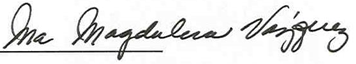 Ma Magdalena Vázquez